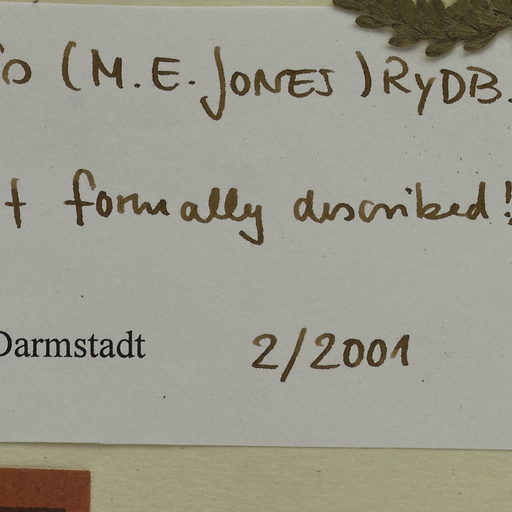 (M.E. JONES) RYDB.
formally described!
Darmstadt 2/2001